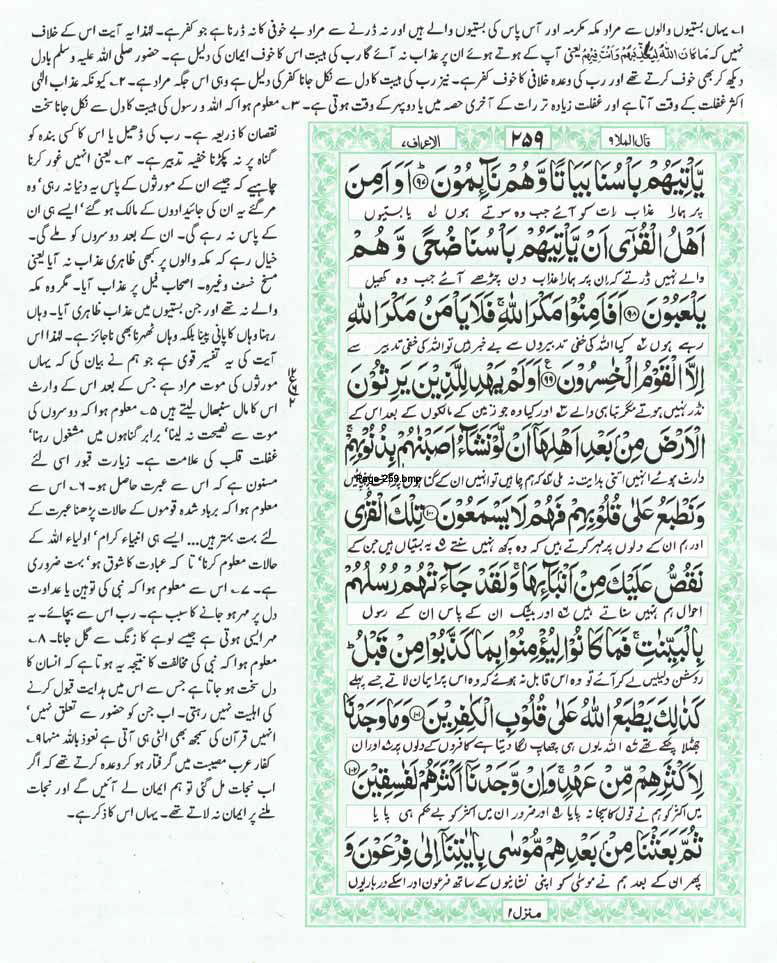 ۱۔ یہاں بستیوں والوں سے مراد مکہ مکرمہ اور آس پاس کی بستیوں والے ہیں اور نہ ڈرنے سے مراد بے خوفی کا نہ ڈرنا ہے جو کفر ہے۔ لہٰذا یہ آیت اس کے خلاف
نہیں کہ مَا كَانَ اللّٰهُ لِيُعَذِّبَهُمْ وَاَنْتَ فِيْهِمْ یعنی آپ کے ہوتے ہوئے ان پر عذاب نہ آئے گا رب کی ہیبت اس کا خوف ایمان کی دلیل ہے۔ حضور صلی اللہ علیہ وسلم بادل
دیکھ کر بھی خوف کرتے تھے اور رب کی وعدہ خلافی کا خوف کفر ہے۔ نیز رب کی ہیبت کا دل سے نکل جانا کفر کی دلیل ہے وہی اس جگہ مراد ہے۔ ۲۔ کیونکہ عذاب الٰہی
اکثر غفلت کے وقت آتا ہے اور غفلت زیادہ تر رات کے آخری حصہ میں یا دوپہر کے وقت ہوتی ہے۔ ۳۔ معلوم ہوا کہ اللہ و رسول کی ہیبت کا دل سے نکل جانا سخت
نقصان کا ذریعہ ہے۔ رب کی ڈھیل یا اس کا کسی بندہ کو
گناہ پر نہ پکڑنا خفیہ تدبیر ہے۔ ۴۔ یعنی انہیں غور کرنا
چاہیے کہ جیسے ان کے مورثوں کے پاس یہ دنیا نہ رہی‘ وہ
مر گئے یہ ان کی جائیدادوں کے مالک ہو گئے‘ ایسے ہی ان
کے پاس نہ رہے گی۔ ان کے بعد دوسروں کو ملے گی۔
خیال رہے کہ مکہ والوں پر کبھی ظاہری عذاب نہ آیا یعنی
مسخ خسف وغیرہ۔ اصحاب فیل پر عذاب آیا۔ مگر وہ مکہ
والے نہ تھے اور جن بستیوں میں عذاب ظاہری آیا۔ وہاں
رہنا وہاں کا پانی پینا بلکہ وہاں ٹھہرنا بھی ناجائز ہے۔ لہٰذا اس
آیت کی یہ تفسیر قوی ہے جو ہم نے بیان کی کہ یہاں
مورثوں کی موت مراد ہے جس کے بعد اس کے وارث
اس کا مال سنبھال لیتے ہیں ۵۔ معلوم ہوا کہ دوسروں کی
موت سے نصیحت نہ لینا‘ برابر گناہوں میں مشغول رہنا‘
غفلت قلب کی علامت ہے۔ زیارت قبور اسی لئے
مسنون ہے کہ اس سے عبرت حاصل ہو۔ ۶۔ اس سے
معلوم ہوا کہ برباد شدہ قوموں کے حالات پڑھنا عبرت کے
لئے بہت بہتر ہیں... ایسے ہی انبیاء کرام‘ اولیاء اللہ کے
حالات معلوم کرنا‘ تا کہ عبادت کا شوق ہو‘ بہت ضروری
ہے۔ ۷۔ اس سے معلوم ہوا کہ نبی کی توہین یا عداوت
دل پر مہر ہو جانے کا سبب ہے۔ رب اس سے بچائے۔ یہ
مہر ایسی ہوتی ہے جیسے لوہے کا زنگ سے گل جانا۔ ۸۔
معلوم ہوا کہ نبی کی مخالفت کا نتیجہ یہ ہوتا ہے کہ انسان کا
دل سخت ہو جاتا ہے جس سے اس میں ہدایت قبول کرنے
کی اہلیت نہیں رہتی۔ اب جن کو حضور سے تعلق نہیں‘
انہیں قرآن کی سمجھ بھی الٹی ہی آتی ہے نعوذ باللہ منہا ۹۔
کفار عرب مصیبت میں گرفتار ہو کر وعدہ کرتے تھے کہ اگر
اب نجات مل گئی تو ہم ایمان لے آئیں گے اور نجات
ملنے پر ایمان نہ لاتے تھے۔ یہاں اس کا ذکر ہے۔
قال الملا ۹ ۲۵۹ الاعراف ۷
يَّاْتِيَهُمْ بَاْسُنَا بَيَاتًا وَّهُمْ نَآئِمُوْنَ ﴿۹۷﴾ اَوَ اَمِنَ
پر ہمارا عذاب رات کو آئے جب وہ سوتے ہوں یا بستیوں
اَهْلُ الْقُرٰٓى اَنْ يَّاْتِيَهُمْ بَاْسُنَا ضُحًى وَّهُمْ
والے نہیں ڈرتے کہ ان پر ہمارا عذاب دن چڑھے آئے جب وہ کھیل
يَلْعَبُوْنَ ﴿۹۸﴾ اَفَاَمِنُوْا مَكْرَ اللّٰهِ ۚ فَلَا يَاْمَنُ مَكْرَ اللّٰهِ
رہے ہوں کیا اللہ کی خفی تدبیروں سے بے خبر ہیں تو اللہ کی خفی تدبیر سے
اِلَّا الْقَوْمُ الْخٰسِرُوْنَ ﴿۹۹﴾ اَوَلَمْ يَهْدِ لِلَّذِيْنَ يَرِثُوْنَ
نڈر نہیں ہوتے مگر تباہی والے اور کیا وہ جو زمین کے مالکوں کے بعد اس کے
الْاَرْضَ مِنْۢ بَعْدِ اَهْلِهَاۤ اَنْ لَّوْ نَشَآءُ اَصَبْنٰهُمْ بِذُنُوْبِهِمْ ۚ
وارث ہوئے انہیں اتنی ہدایت نہ ملی کہ ہم چاہیں تو انہیں ان کے گناہوں پر آفت پہنچائیں
Page-259.bmp
وَنَطْبَعُ عَلٰى قُلُوْبِهِمْ فَهُمْ لَا يَسْمَعُوْنَ ﴿۱۰۰﴾ تِلْكَ الْقُرٰى
اور ہم ان کے دلوں پر مہر کرتے ہیں کہ وہ کچھ نہیں سنتے یہ بستیاں ہیں جن کے
نَقُصُّ عَلَيْكَ مِنْ اَنْۢبَآئِهَا ۚ وَلَقَدْ جَآءَتْهُمْ رُسُلُهُمْ
احوال ہم تمہیں سناتے ہیں اور بیشک ان کے پاس ان کے رسول
بِالْبَيِّنٰتِ ۚ فَمَا كَانُوْا لِيُؤْمِنُوْا بِمَا كَذَّبُوْا مِنْ قَبْلُ ؕ
روشن دلیلیں لے کر آئے تو وہ اس قابل نہ ہوئے کہ وہ اس پر ایمان لاتے جسے پہلے
كَذٰلِكَ يَطْبَعُ اللّٰهُ عَلٰى قُلُوْبِ الْكٰفِرِيْنَ ﴿۱۰۱﴾ وَمَا وَجَدْنَا
جھٹلا چکے تھے اللہ یوں ہی چھاپ لگا دیتا ہے کافروں کے دلوں پر اور ان
لِاَكْثَرِهِمْ مِّنْ عَهْدٍ ۚ وَاِنْ وَّجَدْنَاۤ اَكْثَرَهُمْ لَفٰسِقِيْنَ ﴿۱۰۲﴾
میں اکثر کو ہم نے قول کا سچا نہ پایا اور ضرور ان میں اکثر کو بے حکم ہی پایا
ثُمَّ بَعَثْنَا مِنْۢ بَعْدِهِمْ مُّوْسٰى بِاٰيٰتِنَاۤ اِلٰى فِرْعَوْنَ وَ
پھر ان کے بعد ہم نے موسیٰ کو اپنی نشانیوں کے ساتھ فرعون اور اسکے درباریوں
منزل ۲